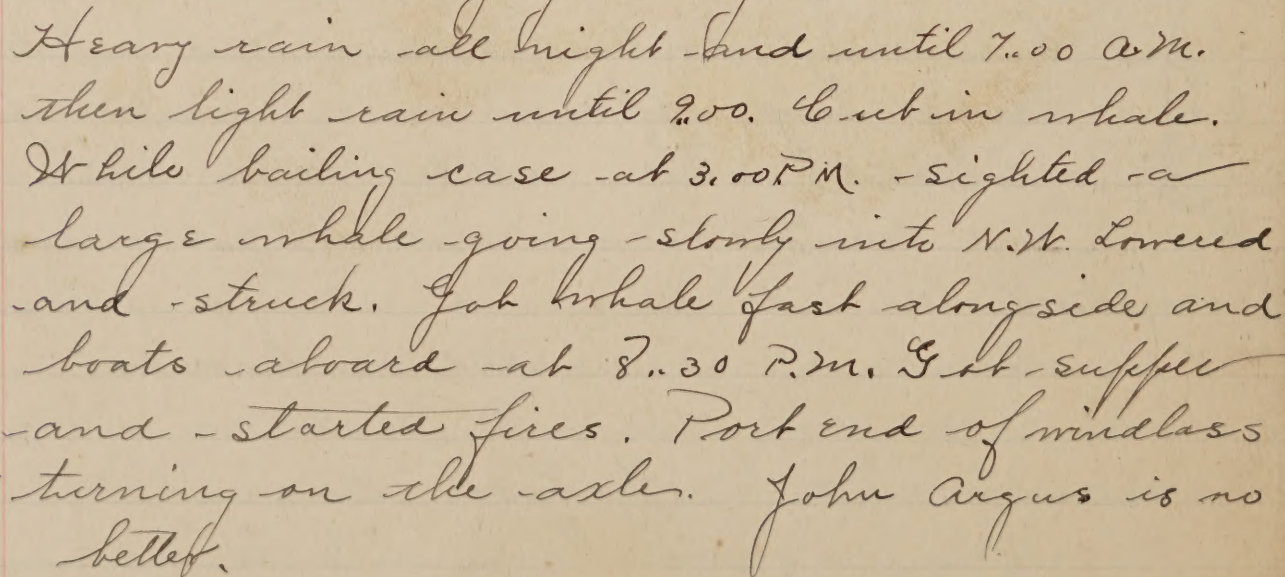 Heavy rain all night and until 7..00 A.M.
then light rain until 9..00. Cut in whale.
While bailing case at 3.00 P.M. sighted a
large whale going slowly into N.W. Lowered
and struck. Got whale fast alongside and
boats aboard at 8..30 P.M. Got supper
and started fires. Port end of windlass
turning on the axle. John Argus is no
better.